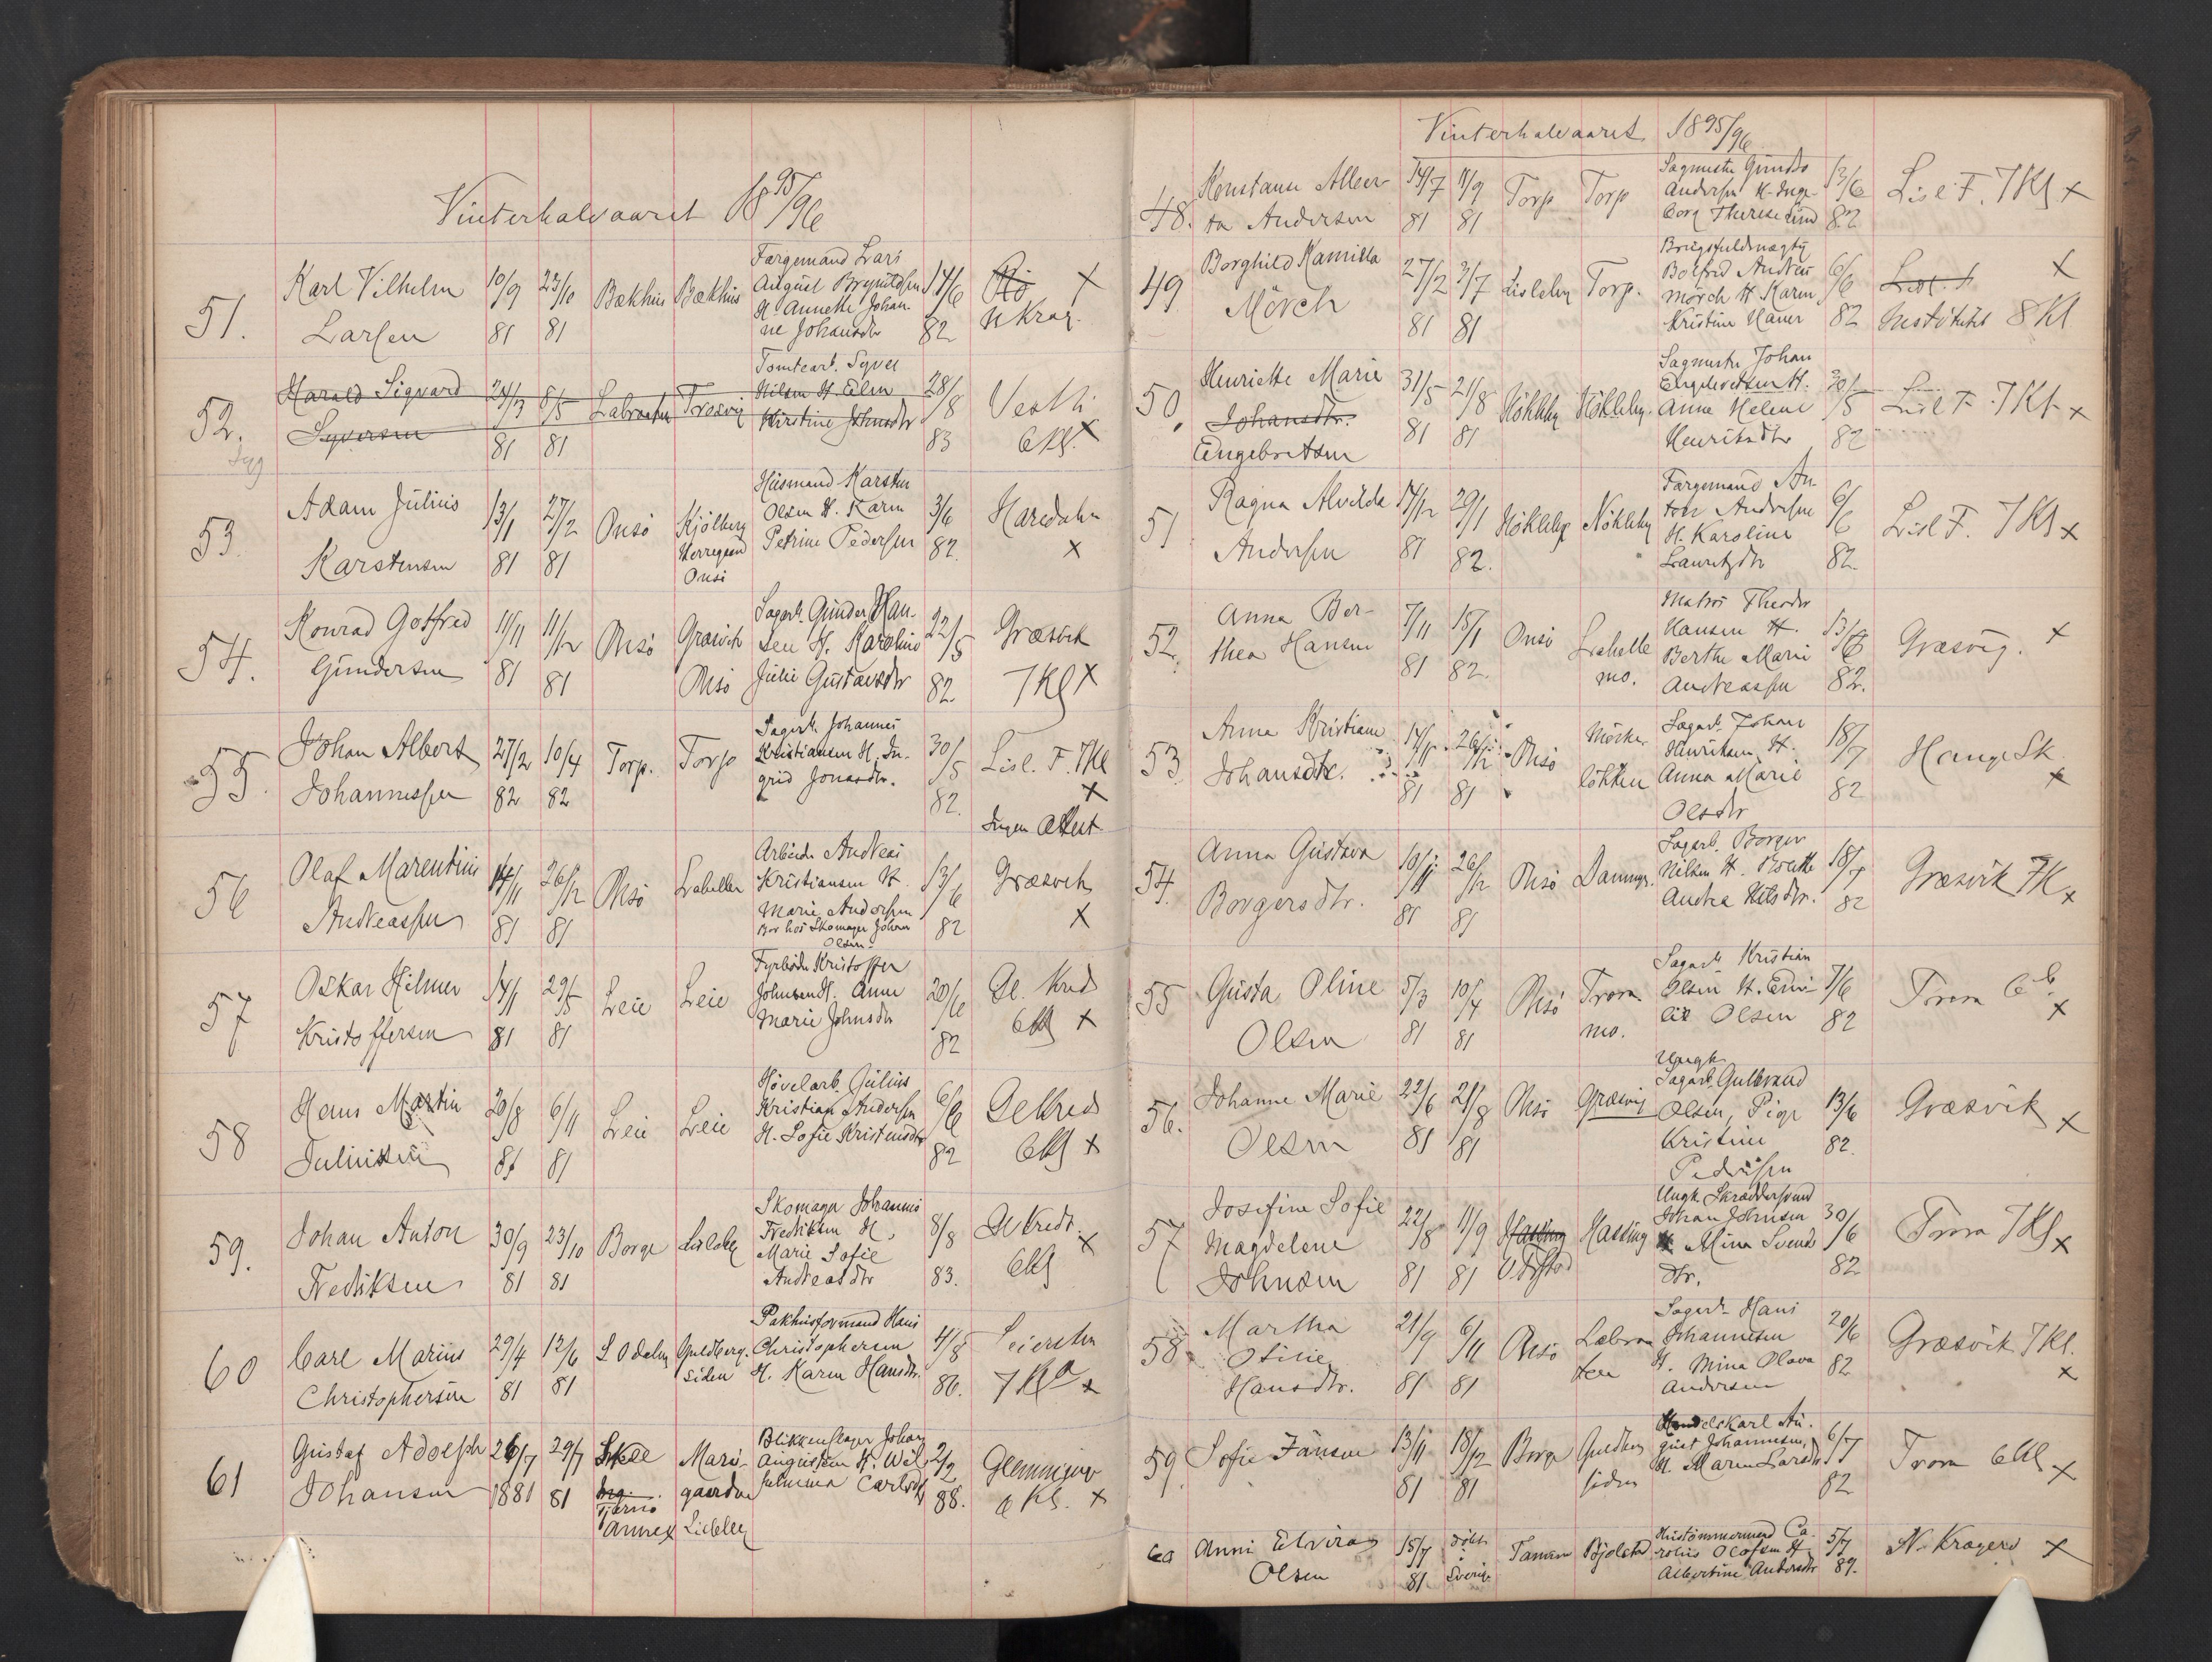 Vinterhalvaaret 1895/96
51. Karl Vilhelm Larsen 10/9 81 23/10 81 Bækhus Bækhus
Fargemand Lars
August Brynildsen
H. Annette Johan-
ne Johansdtr
14/6 82 N Krag. X
52. Harald Sigvard Syversen 24/3 81 8/5 81 Labraaten Træsvig
Tomtearb. Syver
Nilsen H. Elen
Kirstine Johnsdtr
28/8 83 6 Kl. X
53. Adam Julius Karstensen 13/1 81 27/2 81 Onsö Kjölberg Herregaard Onsö
Husmand Karsten
Olsen H. Karen
Petrine Pedersen
3/6 82. X
54. Konrad Gotfred Gundersen 11/11 81 11/12 81 Onsö Græsvik Onsö
Sagarb. Gunder Han-
sen H. Karoline
Julie Gustavsdtr
22/5 82 Græsvik 7 Kl X
55. Johan Albert Johannessen 27/2 82 10/4 82 Torp. Torp
Sagarb. Johannes
Kristiansen H. In-
grid Jonasdtr.
30/5 82. Lisl. F. 7 Kl X
Ingen Attest
56 Olaf Marentius Andreassen 14/11 81 26/12 81 Onsö Labellen
Arbeider Andreas
Kristiansen H.
Marie Andersen
Bor hos Skomager Johan
Olsen.
13/6 82 Græsvik X
57 Oskar Hilmer Kristoffersen 14/1 81 29/5 81 Leie Leie
Fyrböder Kristoffer
Johnsen H. Anne
Marie Johnsdtr
20/6 82 Gl. Kred 6 Kl X
58 Hans Martin Juliussen 20/8 81 6/11 81 Leie Leie
Hövelarb. Julius
Kristian Andersen
H. Sofie Kristensdtr
6/6 82 Gl Kred 6 Kl X
59. Johan Anton Fredriksen 30/9 81 23/10 81 Borge Lisleby
Skomager Johannes
Fredriksen H.
Marie Sofie
Andreasdtr
8/8 83. Gl Kredr. 6 Kl X
60 Carl Marius Christophersen 29/4 81 12/6 81 Guldberg-siden
Pakhusformand Hans
Christophersen
H. Karen Hansdtr.
4/8 86. Seiersten 7 Kl a X
61 Gustaf Adolph Johansen 26/7 1881 29/7 81 Tjernö Annex Marie-gaarden Lisleby
Blikkenslager Johan
Augustsen H. Wil-
helmina Carlsdtr
2/2 88. Glemminge 6 Kl. X
Vinterhalvaaret 1895/96
48. Konstanse Alber-ta Andersen 14/7 81 11/9 81 Torp Torp
Sagmester
Andersen H. Inge-
borg Therese
13/6 82 Lisl F. 7 Kl X
49 Borghild Kamilla Mörch 27/2 81 3/7 81 Lisleby Torp.
Brugsfuldmægtig
Botfred Andreas
Mörch H. Karen
Kristine
6/6 82 Lisl. F X Institutet 8 Kl
50. Henriette Marie Johansdtr. Engebretsen 31/5 81 21/8 81 Nökleby Nökleby.
Sagmester Johan
Engebretsen H.
Anne Helene
Henriksdtr
30/5 82 Lisl F. 7 Kl X
51 Ragna Alvilda Andersen 14/12 81 29/1 82. Nökleby Nökleby
Fargemand An-
ton Andersen
H. Karoline
Lauritzdtr
6/6 82. Lisl F. 7 Kl X
52. Anna Ber-thea Hansen 7/11 81 15/1 82. Onsö Labelle mo.
Matros Theodor
Hansen H.
Berthe Marie
Andreassen
13/6 82. Græsvig. X
53. Anna Kristiane Johansdtr. 14/11 81 26/12 81 Onsö Mörke-lökken
Sagarb. Johan
Henriksen H.
Anna Marie
Olsdtr
18/7 82 Hauge Sk. X
54. Anna Gustava Borgersdtr. 10/11 81 26/12 81 Onsö Dammyr.
Sagarb. Borger
Nilsen H.
Andrea Nilsdtr.
18/7 82 Græsvik 7 K X
55 Gusta Oline Olsen 5/3 81 10/4 81 Onsö Trara mo.
Sagarb Kristian
Olsen H. Emi-
lie Olsen
7/6 82 Trara 6 b. X
56. Johanne Marie Olsen 22/6 81 21/8 81 Onsö Græsvig
Ungk.
Sagarb. Gulbrand
Olsen, Pige
Kristine
Pedersen
13/6 82. Græsvik X
57 Josefine Sofie Magdelene Johnsen 22/8 81 11/9 81 Hassing Hassing
Ungk. Skræddersvend
Johan Johnsen
Mina Svends
dtr.
30/6 82 Trara 7 Kl X
58 Martha Otilie Hansdtr. 21/9 81 6/11 81 Onsö Labraa ten
Sagarb. Hans
Johannesen
H. Mina Olava
Andersen
20/6 82 Græsvik 7 Kl. X
59. Sofie Jansen 13/11 81 18/12 81 Borge Guldberg siden
Handelskarl Au-
gust Johannesen,
H. Maren Larsdtr
6/7 82 Trara 6 Kl X
60 Anni Elvira Olsen 15/7 81 döbt i Sverige Bjölstad
Hustömmermand Ca-
rolus Olofsen H.
Albertine Andersdtr
5/7 89. N. Kragerö X